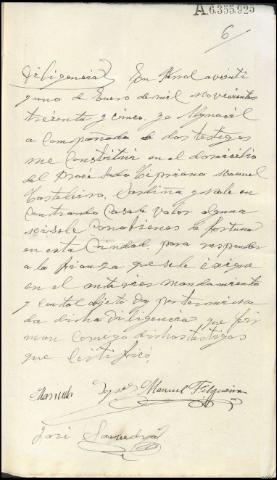 A6.355.925
6
Diligencia En Ferrol a veinti
uno de Enero de mil novecientos
treinta y cinco, yo Alguacil
acompañado de dos testigos
me constituí en el domicilio
del procesado Cipriano Manuel
Sardina y
encontrando cosa de valor alguna
bienes de fortuna
en esta Ciudad, para responder
a la fianza que se le exige
en el anterior mandamiento
y con tal objeto doy por termina
da dicha diligencia que fir
man conmigo dichos testigos
que certifico
Manuel Manuel Filgueira
José Saavedra